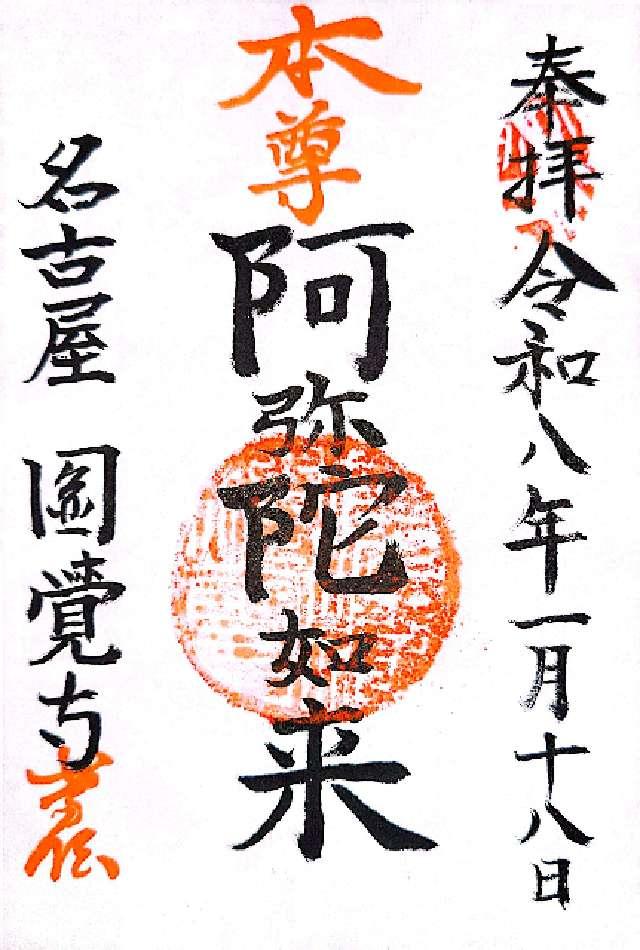 奉拝 令和八年一月十八日
本尊
阿弥陀如来
名古屋 圓覺寺